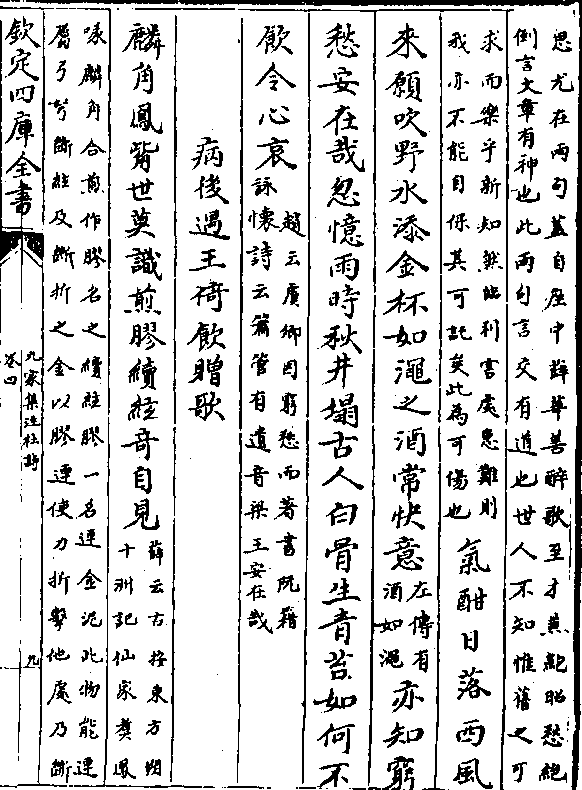 思尤在兩句蓋自座中薛華善醉歌至才兼鮑昭愁絕
倒言文章有神也此兩句言交有道也世人不知惟舊之可
求而樂乎新知無臨利害處患難則
我亦不能自保其可託矣此為可傷也
氣酣日落西風
來願吹野水添金杯如澠之酒常快意
左傳有
酒如澠
亦知窮
愁安在哉忽憶雨時秋井塌古人白骨生青苔如何不
飲令心哀
趙云虞卿因窮愁而著書阮籍
詠懷詩云簫管有遺音梁王安在哉
病後遇王倚飲贈歌
麟角鳳觜世莫識煎膠續絃奇自見
薛云右按東方朔
十洲記仙家煑鳳
喙麟角合煎作膠名之續絃膠一名連金泥此物能連
屬弓弩斷絃及斷折之金以膠連使力折擊他處乃斷
欽定四庫全書
九家集注杜詩
卷四
九